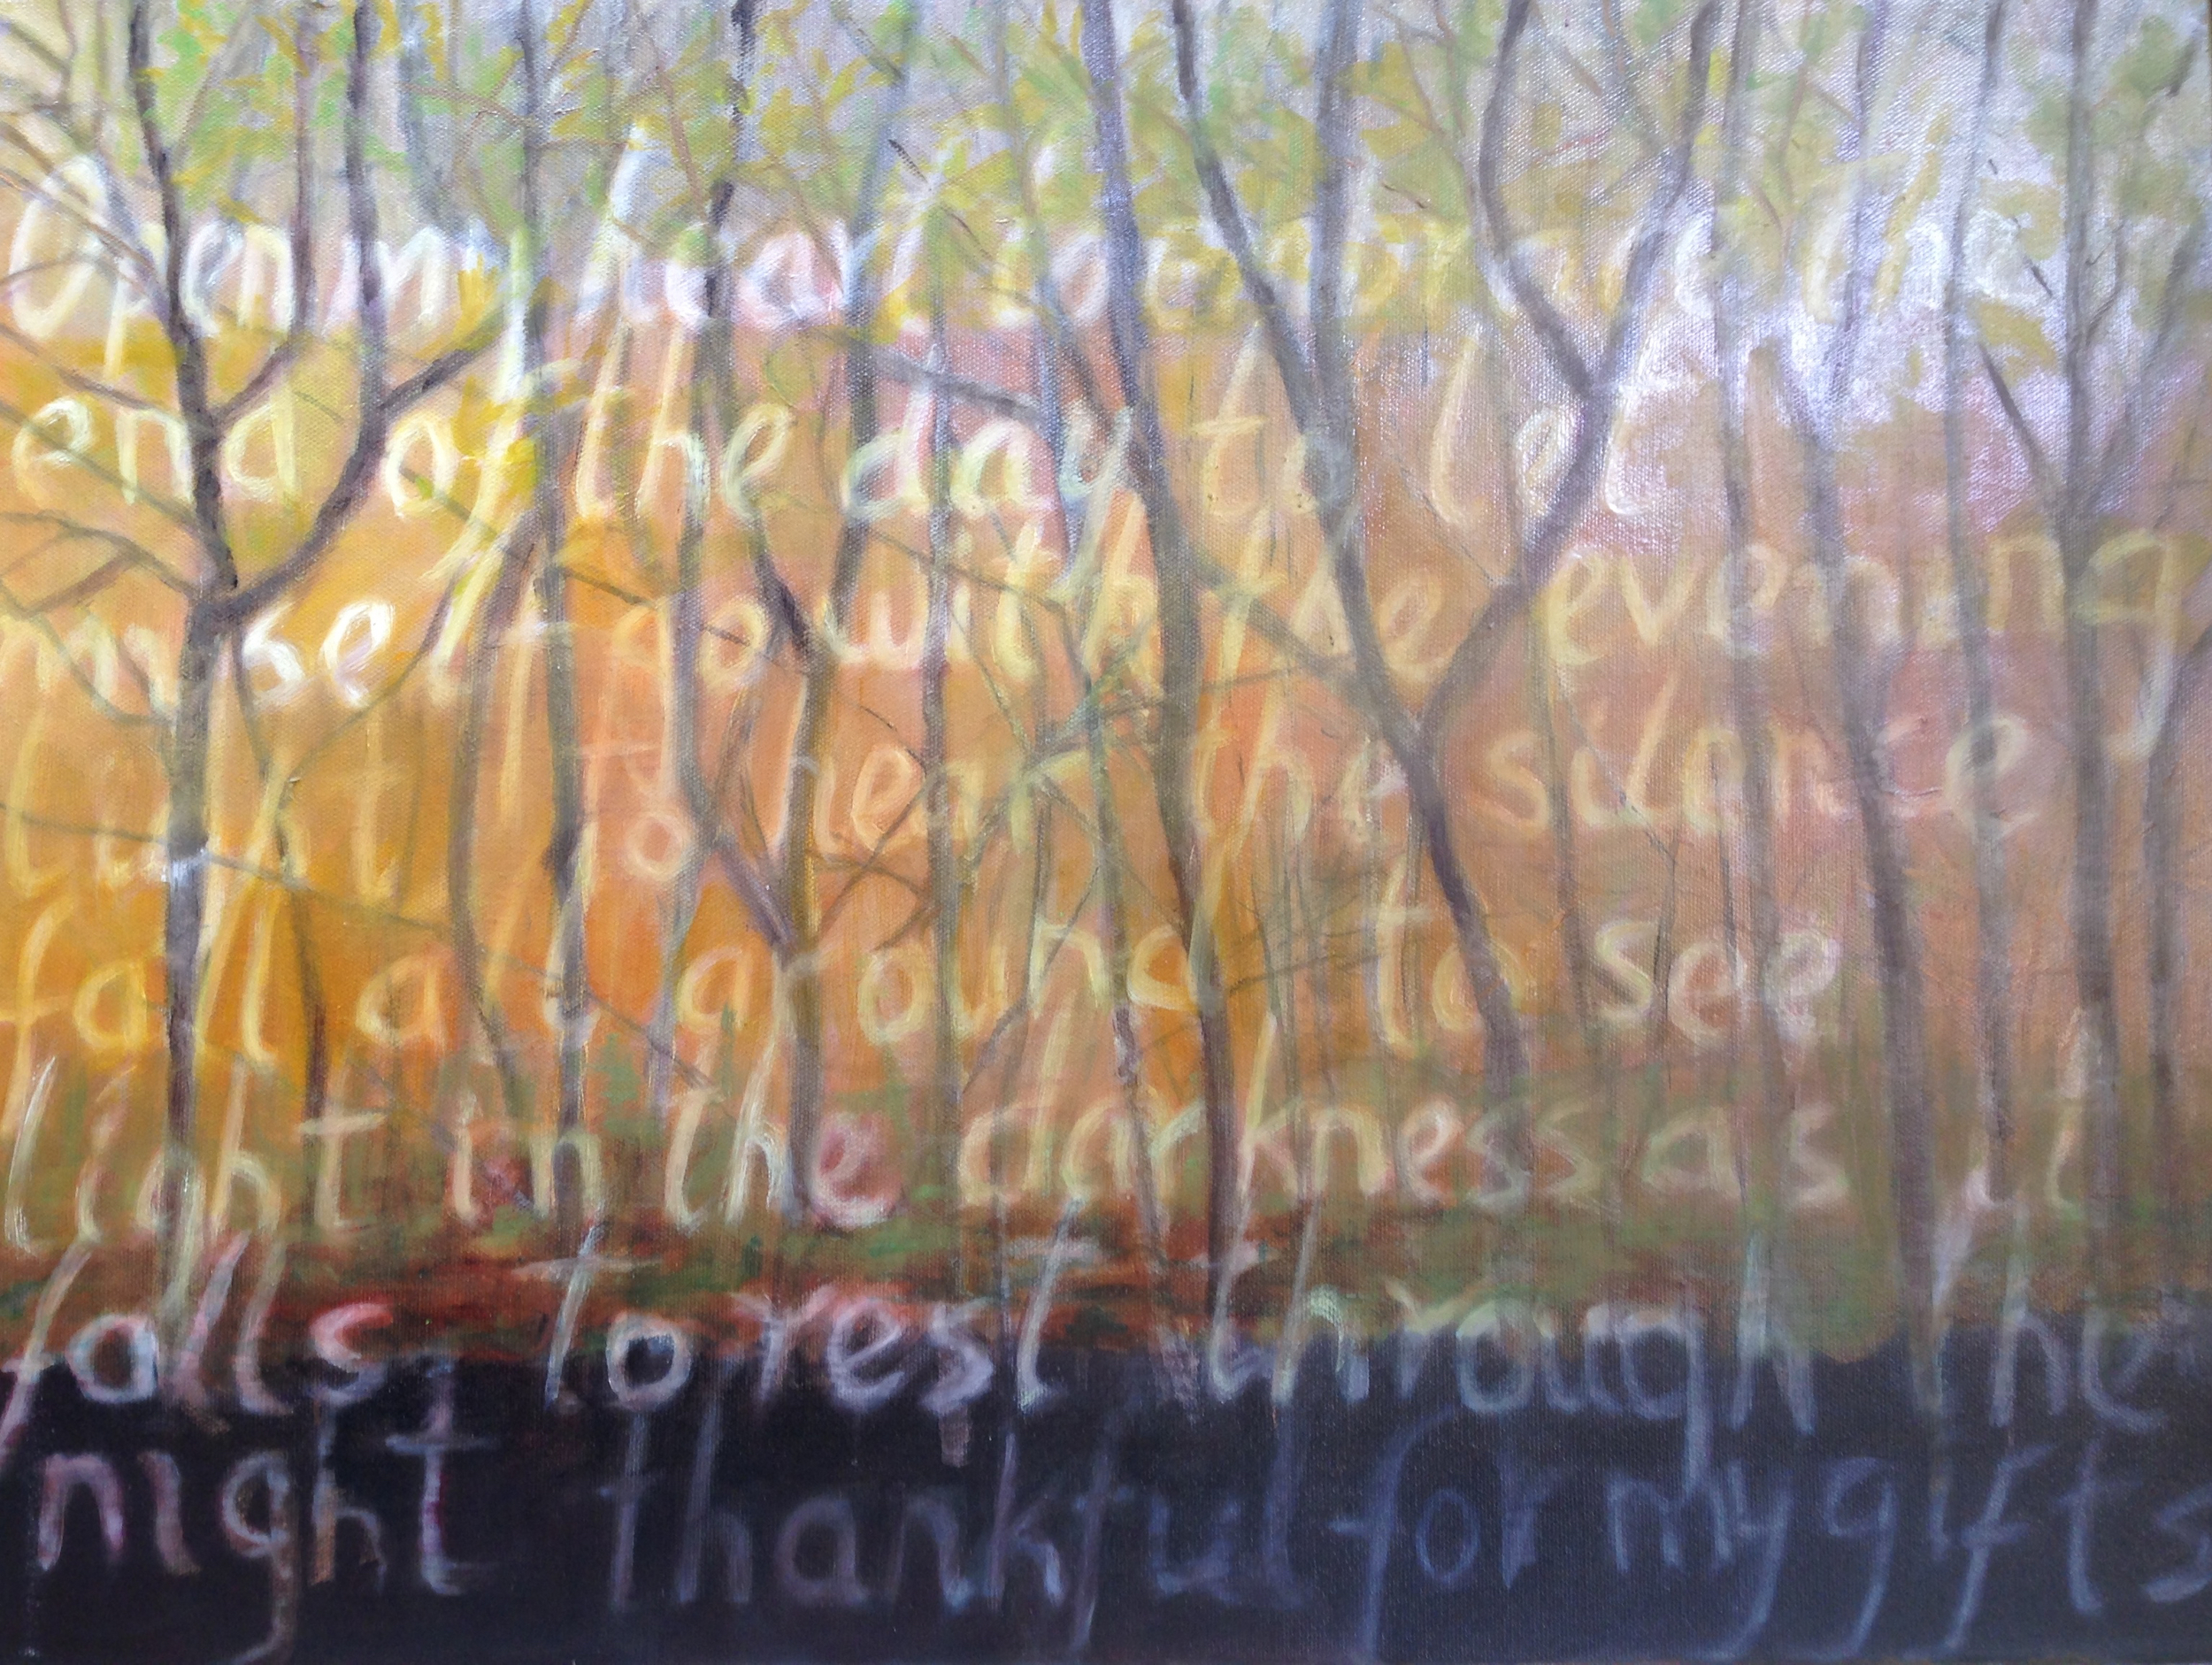 Open the
end of the day to let
my self go with the evening
light to hear the silence
fall all around to see
light in the darkness as it
falls to rest through the
night thankful for my gifts